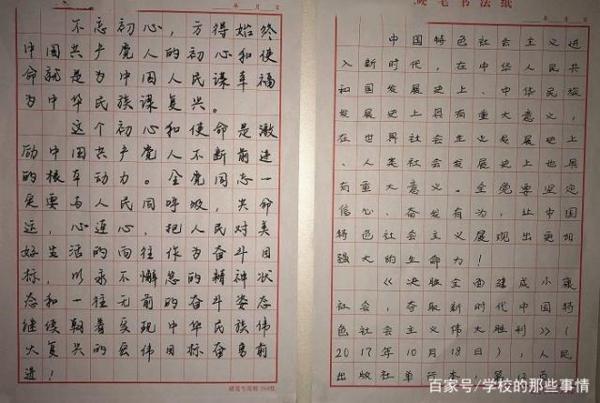 年 月 日
不忘初心，方得始终
中国共产党人的初心和使
命就是为中国人民谋幸福
为中华民族谋复兴。
这个初心和使命是激
励中国共产党人不断前进
的根本动力。全党同志一
定要与人民同呼吸，共命
运，心连心，把人民对美
好生活的向往作为奋斗目
标，以永不懈怠的精神状
态和一往无前的奋斗姿态
继续朝着实现中华民族伟
大复兴的宏伟目标奋勇前
进！
硬笔书法纸
年 月 日
中国特色社会主义进
入新时代，在中华人民共
和国发展史上、中华民族
发展史上具有重大意义，
在世界社会主义发展史上
、人类社会发展史上也具
有重大意义。全党要坚定
信心、奋发有为，让中国
特色社会主义展现出更加
强大的生命力！
《决胜全面建成小康
社会，夺取新时代中国特
色社会主义伟大胜利》（
2017年10月18日），人民
出版社单行本，第12页
百家号/学校的那些事情